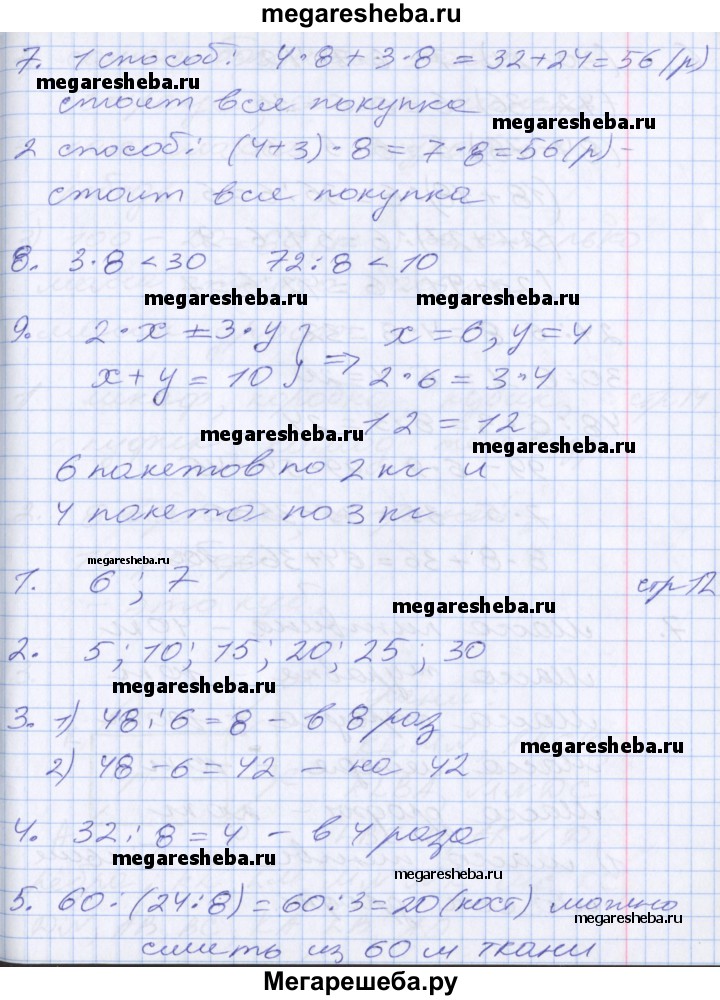 megaresheba.ru
7. 1 способ: 4·8+3·8 = 32+24=56 (р)
megaresheba.ru
стоит вся покупка
megaresheba.ru
2 способ: (4+3)·8 = 7·8=56(р) -
стоит вся покупка
8. 3·8 < 30 72:8 < 10
megaresheba.ru megaresheba.ru
9. 2·x = 3·y } x = 6, y = 4
x+y = 10 } => 2·6 = 3·4
megaresheba.ru
12 = 12
megaresheba.ru megaresheba.ru
6 пакетов по 2 кг и
4 пакета по 3 кг
megaresheba.ru
1. 6 ; 7 стр 12
megaresheba.ru
2. 5; 10; 15; 20; 25; 30
megaresheba.ru
3. 1) 48:6=8 - в 8 раз
megaresheba.ru
2) 48-6=42 - на 42
4. 32:8=4 - в 4 раза
megaresheba.ru
megaresheba.ru
5. 60:(24:8)=60:3=20(кост) можно
megaresheba.ru
сшить из 60 м ткани
Мегарешеба.ру